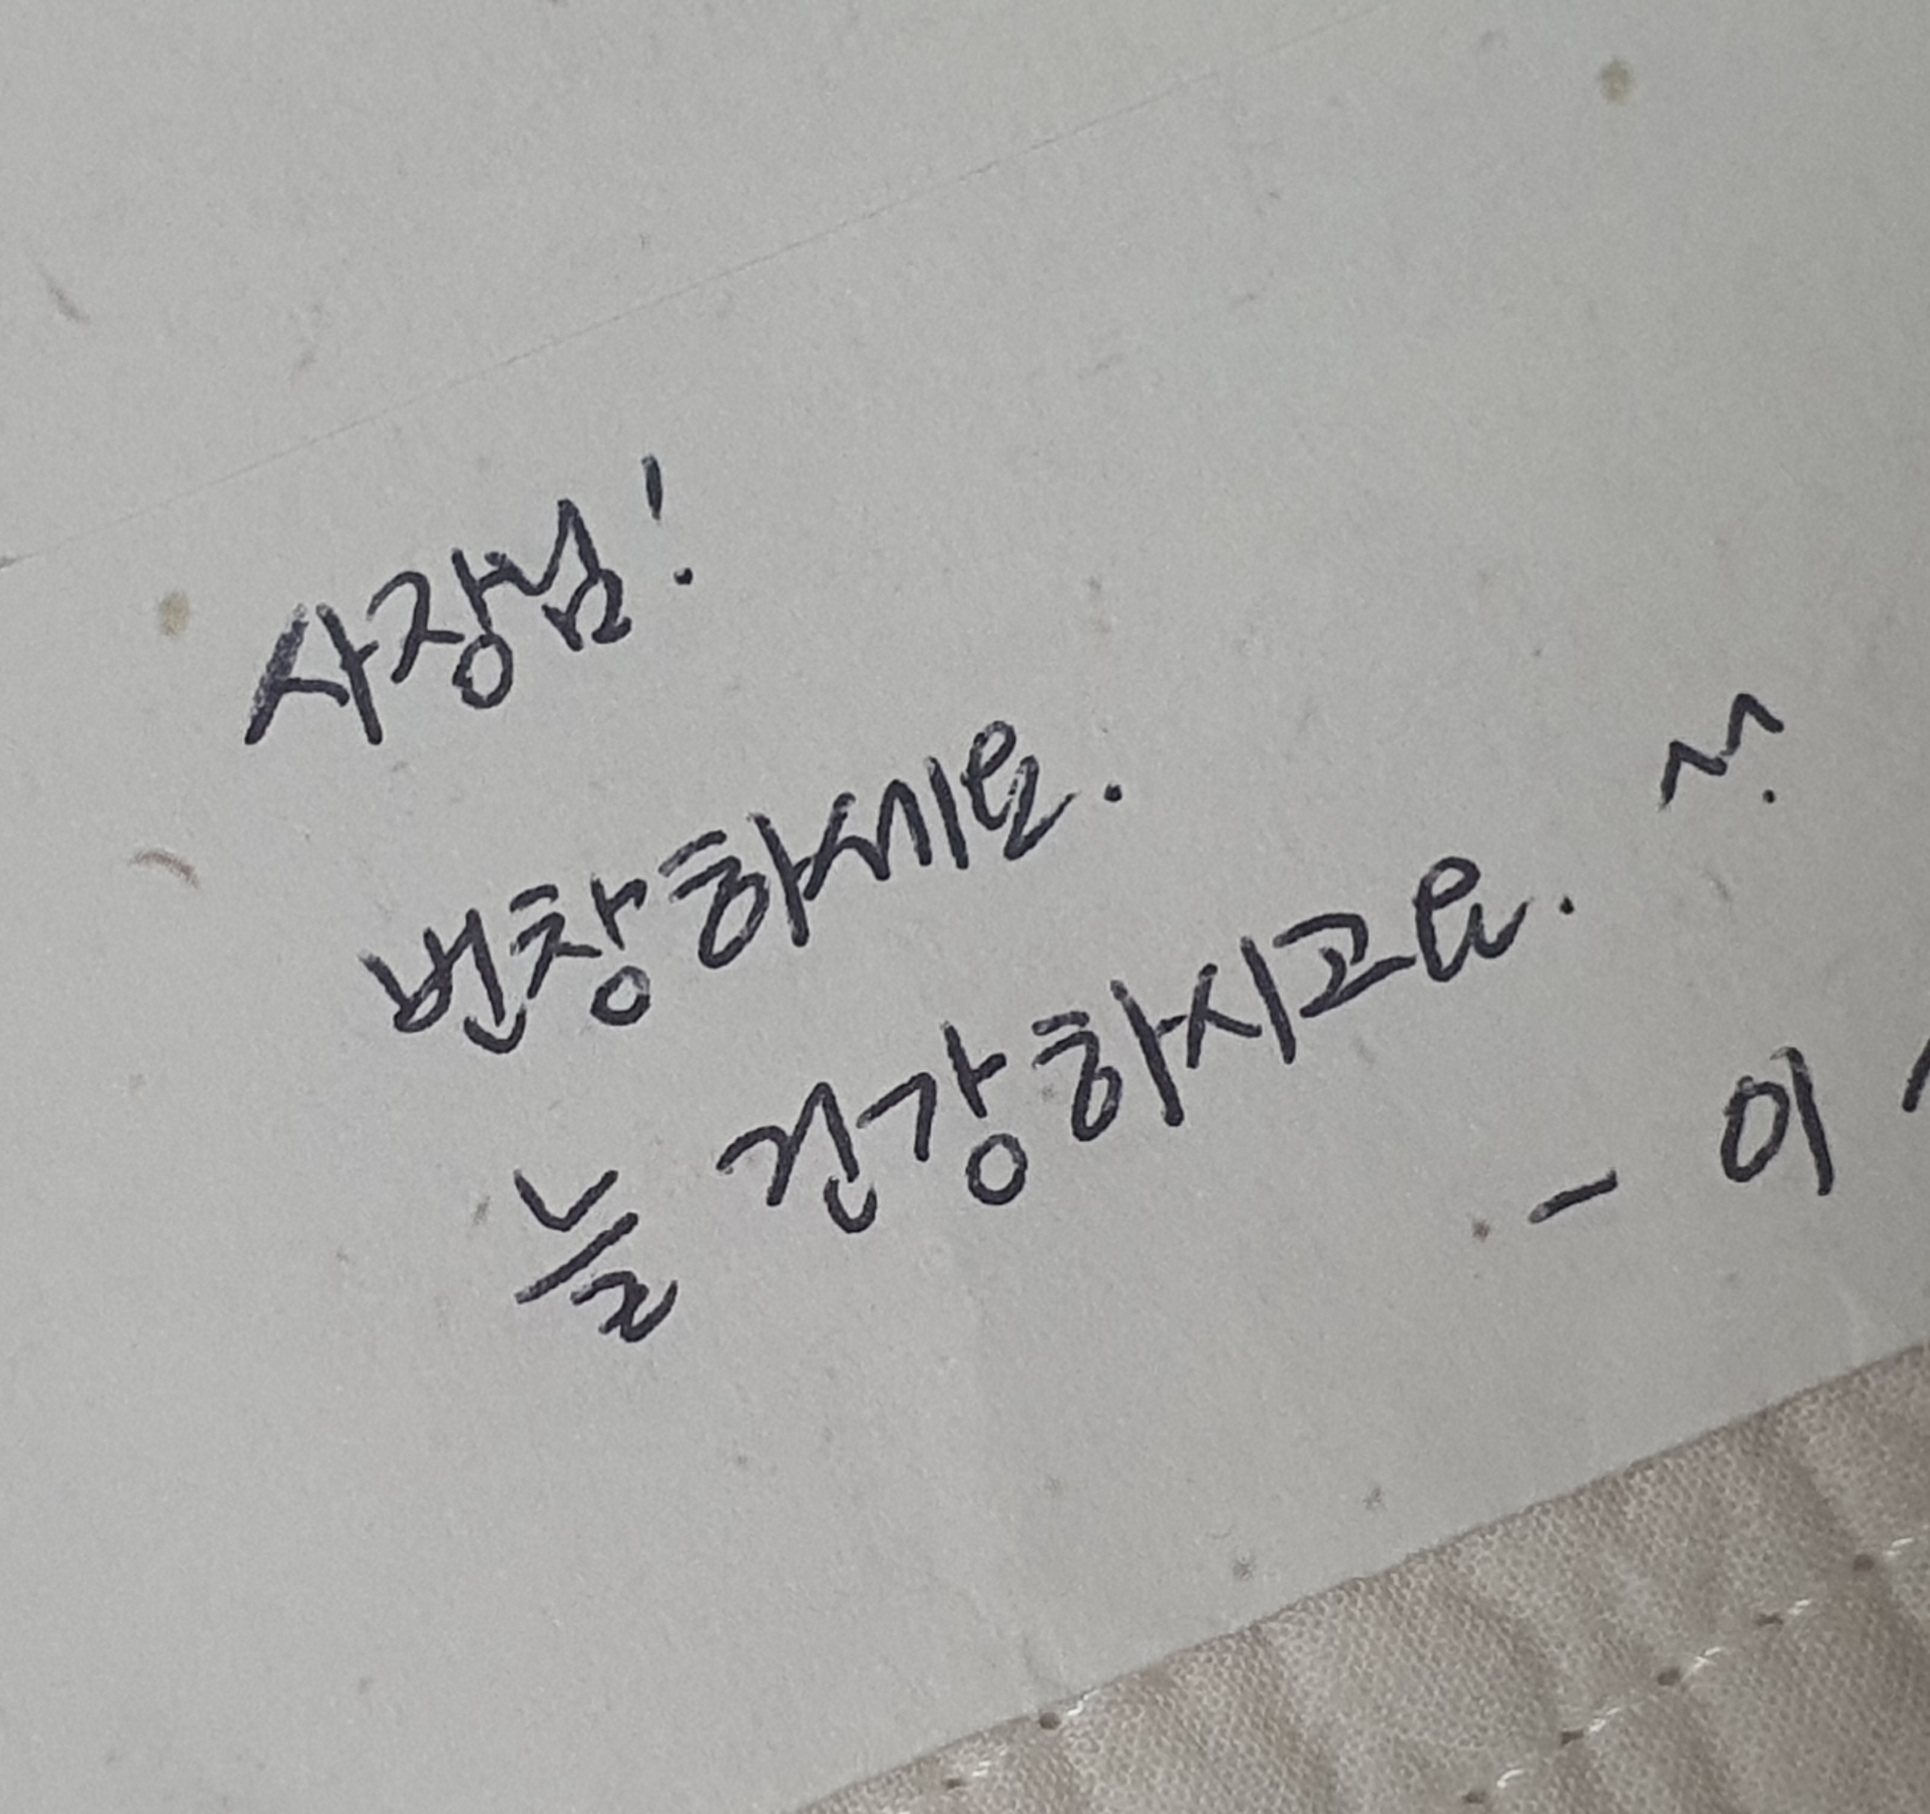 사장님!
번창하세요.
늘 건강하시고요. ^^.
- 이